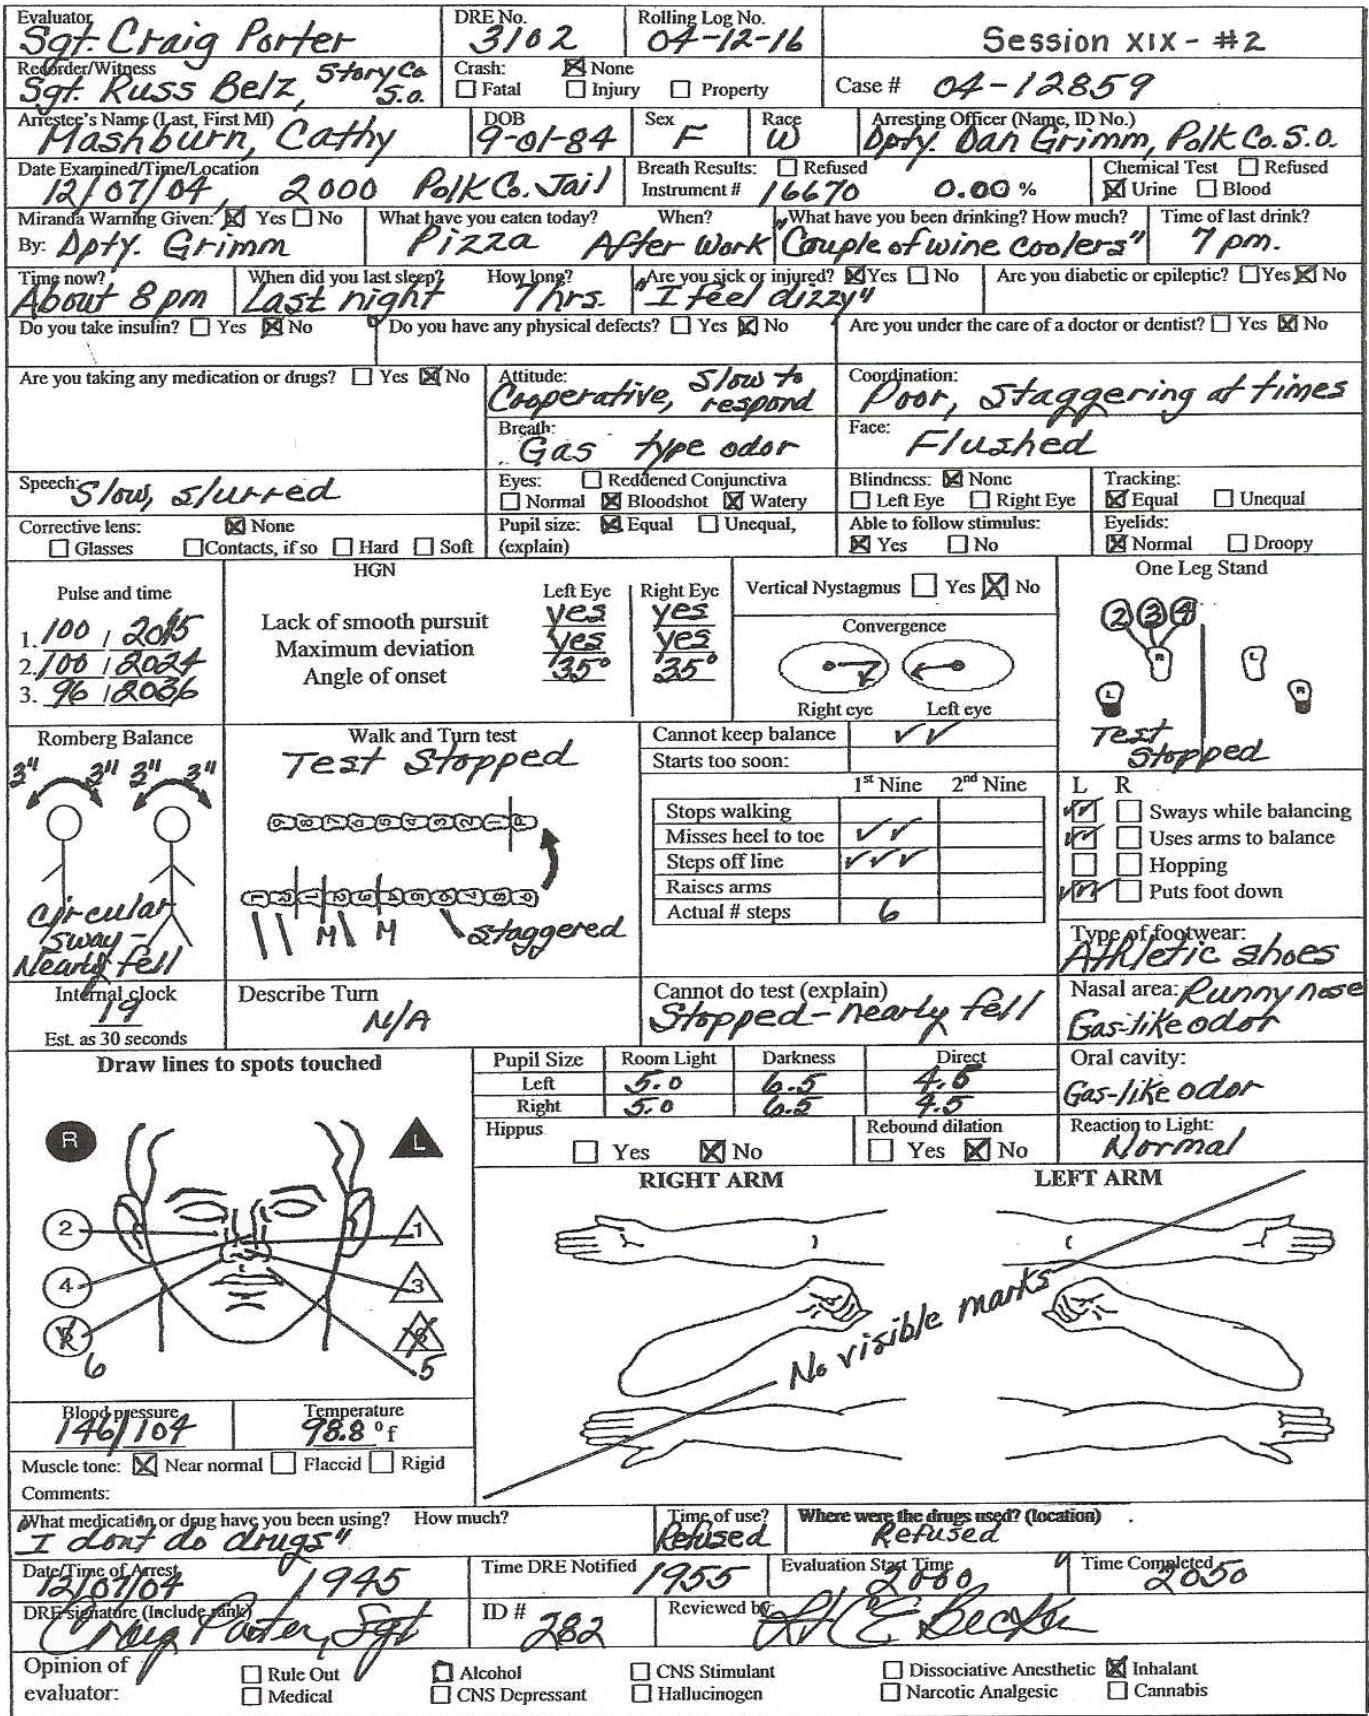 Evaluator DRE No. Rolling Log No.
Sgt. Craig Porter 3102 04-12-16 Session XIX - #2
Recorder/Witness Crash: ☒ None
Sgt. Russ Belz, Story Co. S.O. ☐ Fatal ☐ Injury ☐ Property Case # 04-12859
Arrestee's Name (Last, First MI) DOB Sex Race Arresting Officer (Name, ID No.)
Mashburn, Cathy 9-01-84 F W Dpty. Dan Grimm, Polk Co. S.O.
Date Examined/Time/Location Breath Results: ☐ Refused Chemical Test ☐ Refused
12/07/04, 2000 Polk Co. Jail Instrument # 16670 0.00 % ☒ Urine ☐ Blood
Miranda Warning Given: ☒ Yes ☐ No What have you eaten today? When? What have you been drinking? How much? Time of last drink?
By: Dpty. Grimm Pizza After work "Couple of wine coolers" 7 pm.
Time now? When did you last sleep? How long? Are you sick or injured? ☒ Yes ☐ No Are you diabetic or epileptic? ☐ Yes ☒ No
About 8 pm Last night 7 hrs. "I feel dizzy"
Do you take insulin? ☐ Yes ☒ No Do you have any physical defects? ☐ Yes ☒ No Are you under the care of a doctor or dentist? ☐ Yes ☒ No
Are you taking any medication or drugs? ☐ Yes ☒ No Attitude: Cooperative, Slow to respond Coordination: Poor, staggering at times
Breath: Gas type odor Face: Flushed
Speech: Slow, slurred Eyes: ☐ Reddened Conjunctiva ☐ Normal ☒ Bloodshot ☒ Watery Blindness: ☒ None ☐ Left Eye ☐ Right Eye Tracking: ☒ Equal ☐ Unequal
Corrective lens: ☒ None ☐ Glasses ☐ Contacts, if so ☐ Hard ☐ Soft Pupil size: ☒ Equal ☐ Unequal, (explain) Able to follow stimulus: ☒ Yes ☐ No Eyelids: ☒ Normal ☐ Droopy
Pulse and time
1. 100 / 2015
2. 100 / 2024
3. 96 / 2036
HGN
Left Eye Right Eye
Lack of smooth pursuit yes yes
Maximum deviation yes yes
Angle of onset 35° 35°
Vertical Nystagmus ☐ Yes ☒ No
Convergence
Right eye Left eye
One Leg Stand
2 3 4
R L
L R
Test Stopped
Romberg Balance
3" 3" 3" 3"
Circular sway - Nearly fell
Walk and Turn test
Test Stopped
M M Staggered
Cannot keep balance ✓✓
Starts too soon:
1st Nine 2nd Nine
Stops walking
Misses heel to toe ✓✓
Steps off line ✓✓✓
Raises arms
Actual # steps 6
L R
✓✓ ☐ Sways while balancing
✓✓ ☐ Uses arms to balance
☐ ☐ Hopping
✓✓✓ ☐ Puts foot down
Type of footwear:
Athletic shoes
Internal clock
19
Est. as 30 seconds
Describe Turn
N/A
Cannot do test (explain)
Stopped - nearly fell
Nasal area: Runny nose
Gas-like odor
Draw lines to spots touched
R L
2 1
4 3
6 5
Pupil Size Room Light Darkness Direct
Left 5.0 6.5 4.5
Right 5.0 6.5 4.5
Oral cavity:
Gas-like odor
Hippus ☐ Yes ☒ No Rebound dilation ☐ Yes ☒ No Reaction to Light: Normal
RIGHT ARM LEFT ARM
No visible marks
Blood pressure Temperature
146/104 98.8 °f
Muscle tone: ☒ Near normal ☐ Flaccid ☐ Rigid
Comments:
What medication or drug have you been using? How much? Time of use? Where were the drugs used? (location)
"I dont do drugs" Refused Refused
Date/Time of Arrest Time DRE Notified Evaluation Start Time Time Completed
12/07/04 1945 1955 2000 2050
DRE signature (Include rank) ID # Reviewed by:
Craig Porter, Sgt 282 Lt C E Becker
Opinion of evaluator:
☐ Rule Out ☐ Alcohol ☐ CNS Stimulant ☐ Dissociative Anesthetic ☒ Inhalant
☐ Medical ☐ CNS Depressant ☐ Hallucinogen ☐ Narcotic Analgesic ☐ Cannabis